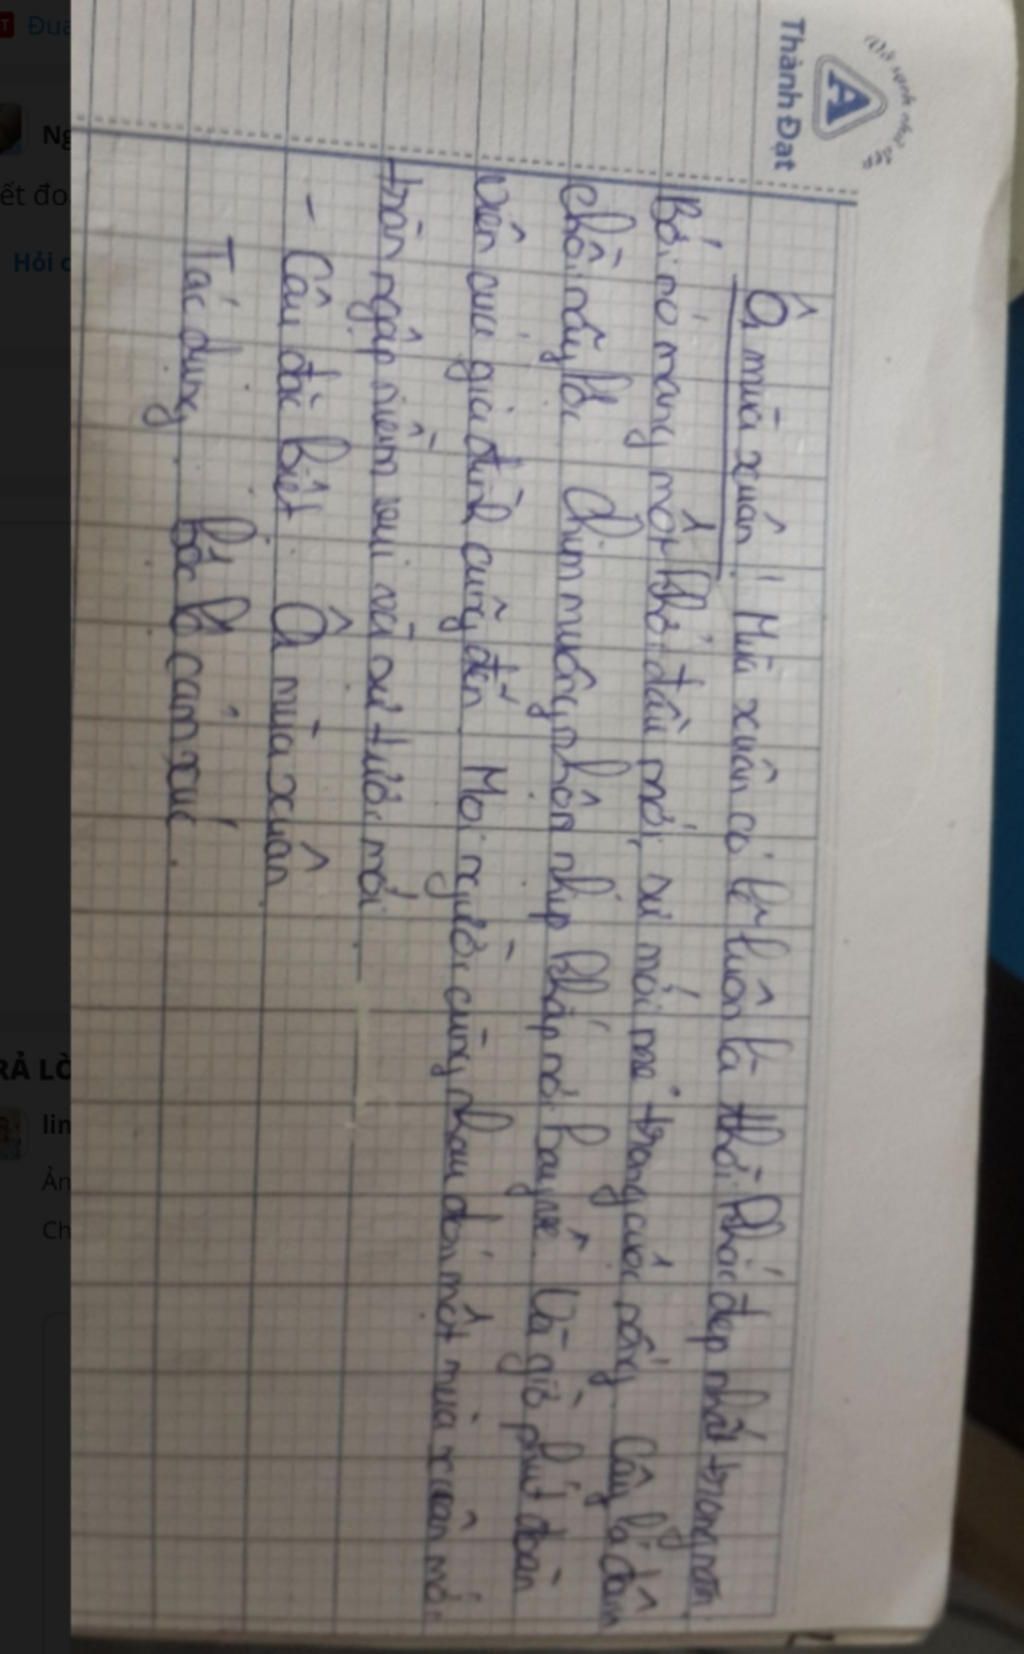 Thành Đạt
A
Ôi mùa xuân! Mùa xuân có lẽ luôn là thời khắc đẹp nhất trong năm.
Bởi nó mang một khởi đầu mới, sự mới mẻ trong cuộc sống. Cây lá đâm
chồi nảy lộc. Chim muông nhộn nhịp khắp nơi bay về. Và giờ phút đoàn
viên của gia đình cũng đến. Mọi người cùng nhau đón một mùa xuân mới
tràn ngập niềm vui và sự tươi mới.
- Câu đặc biệt: Ôi mùa xuân
Tác dụng: bộc lộ cảm xúc.
Đua
Ng
ết đo
Hỏi c
RẢ LỜ
lin
Ản
Ch